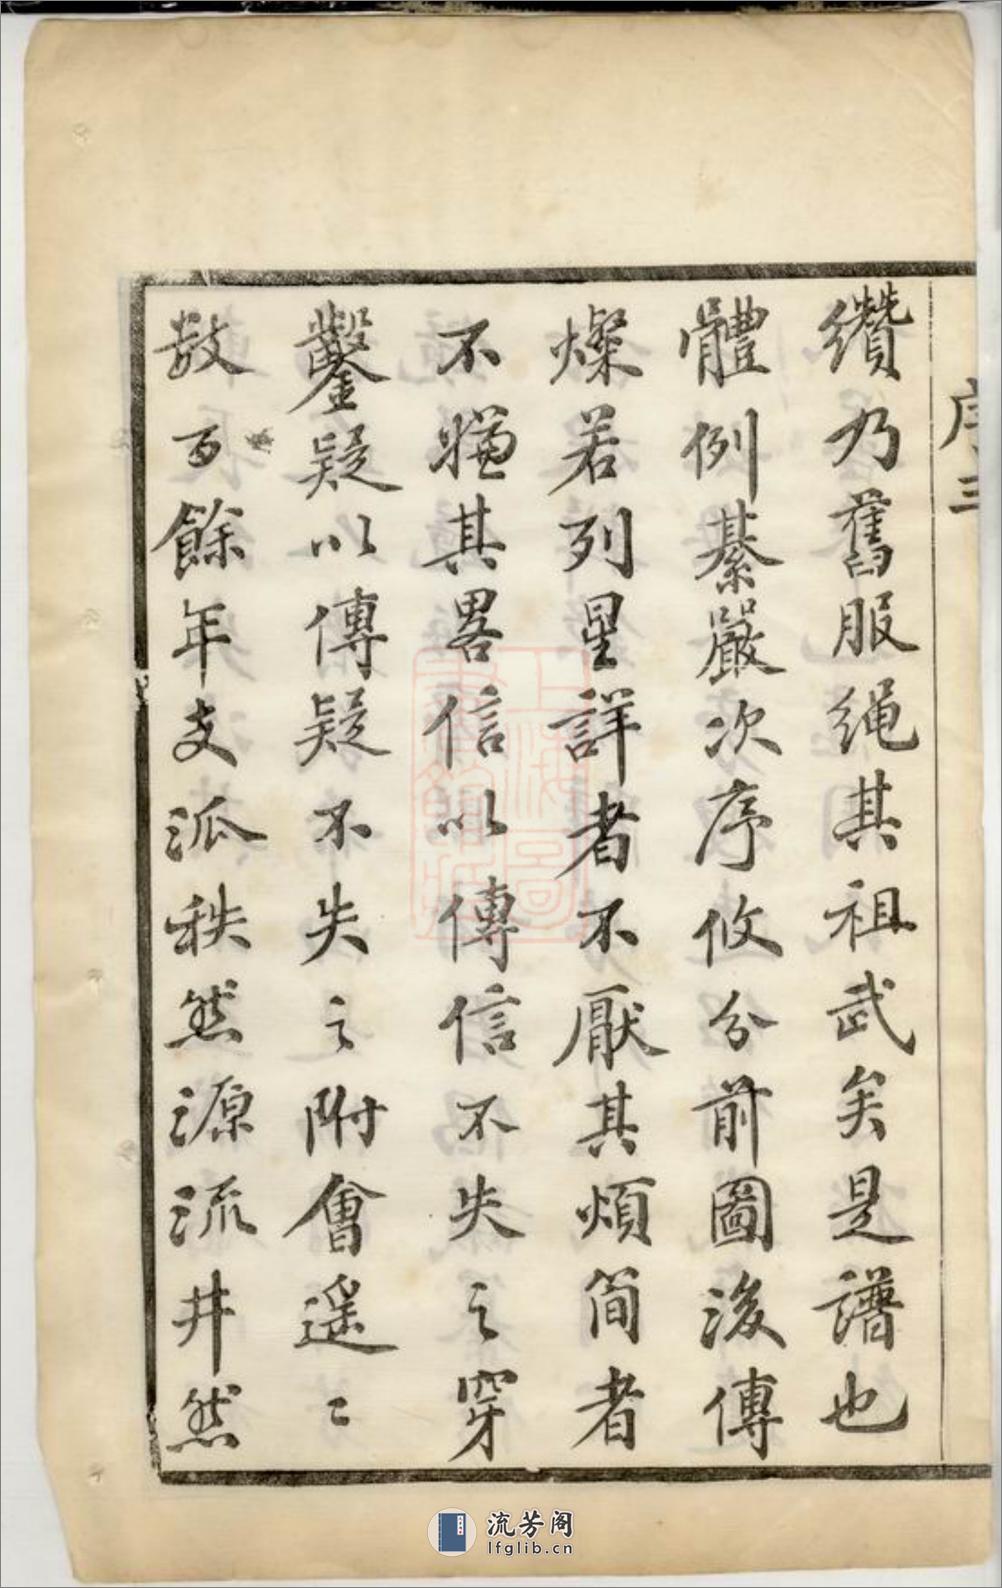 序 三
纘乃舊服繩其祖武矣是譜也
體例綦嚴次序攸分前圖後傳
燦若列星詳者不厭其煩簡者
不嫌其畧信以傳信不失之穿
鑿疑以傳疑不失之附會遥〻
数百餘年支派秩然源流井然
上海圖書館藏
流芳阁
lfglib.cn